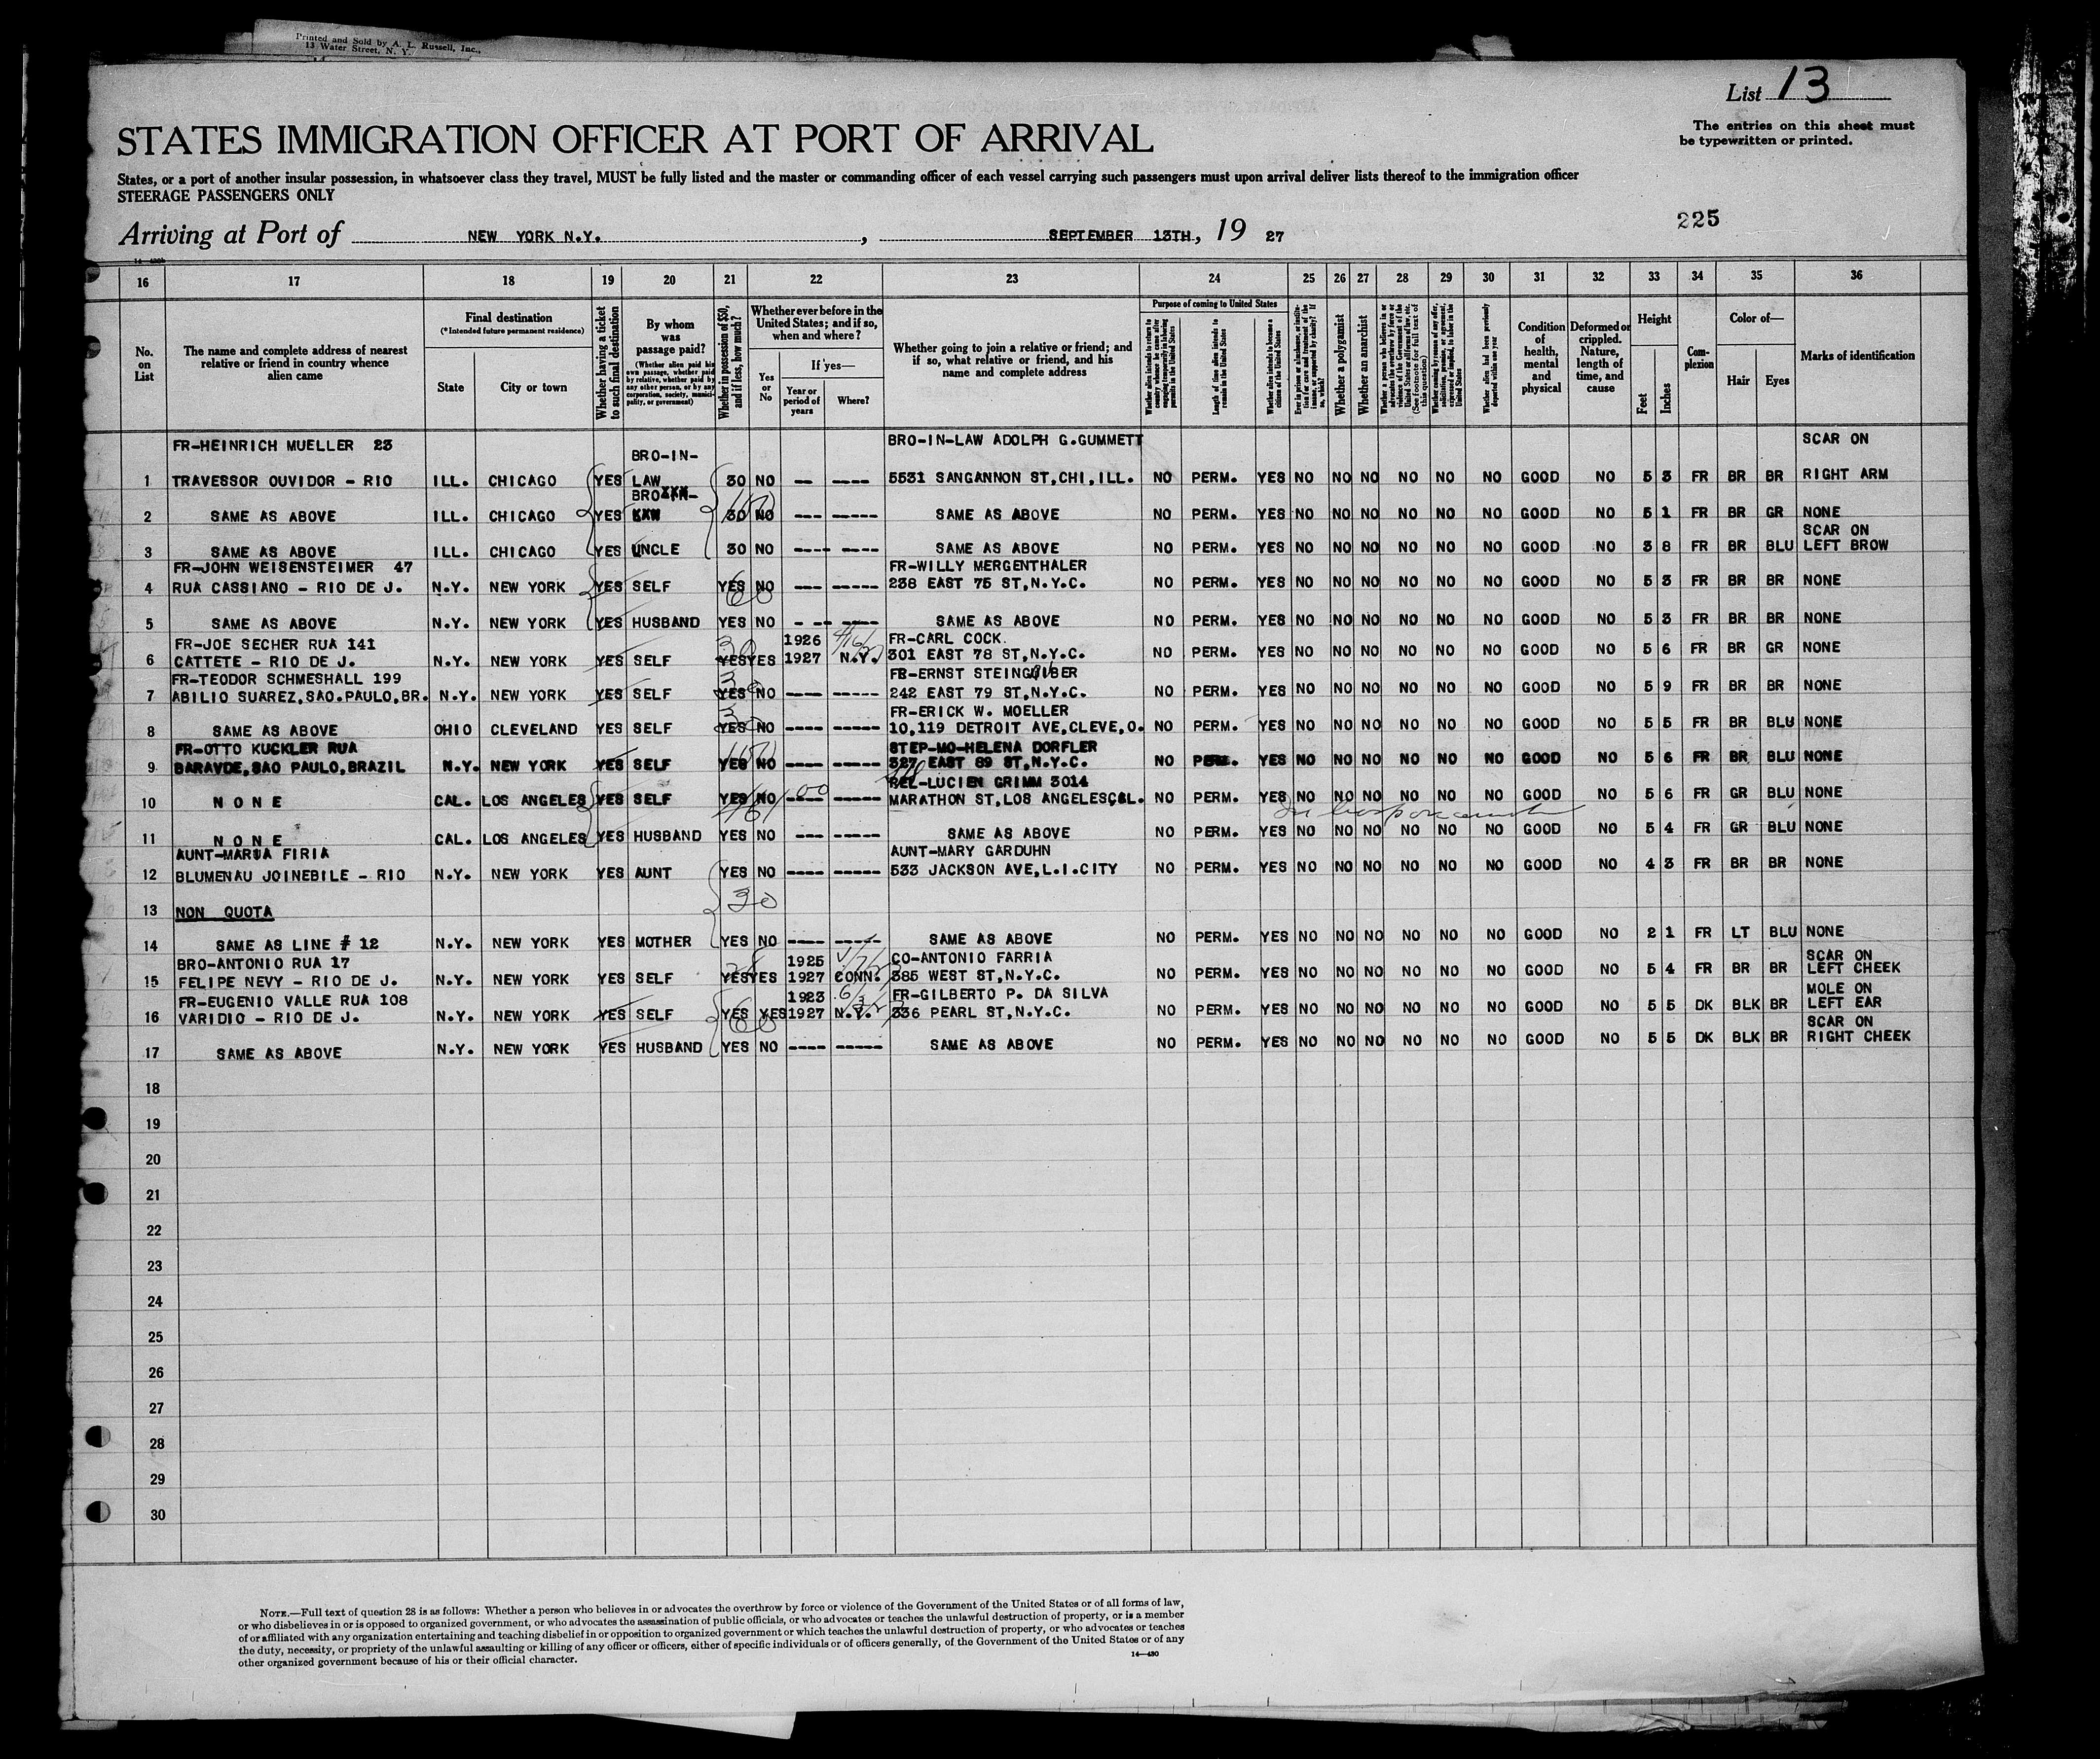 Printed and Sold by A. L. Russell, Inc.,
13 Water Street, N. Y.
List 13
The entries on this sheet must
be typewritten or printed.
STATES IMMIGRATION OFFICER AT PORT OF ARRIVAL
States, or a port of another insular possession, in whatsoever class they travel, MUST be fully listed and the master or commanding officer of each vessel carrying such passengers must upon arrival deliver lists thereof to the immigration officer
STEERAGE PASSENGERS ONLY
225
Arriving at Port of NEW YORK N.Y. , SEPTEMBER 13TH, 19 27
16 17 18 19 20 21 22 23 24 25 26 27 28 29 30 31 32 33 34 35 36
No. on List
The name and complete address of nearest relative or friend in country whence alien came
Final destination
(*Intended future permanent residence)
State
City or town
Whether having a ticket to such final destination
By whom was passage paid?
(Whether alien paid his own passage, whether paid by relative, whether paid by any other person, or by any corporation, society, municipality, or government)
Whether in possession of $50, and if less, how much?
Whether ever before in the United States; and if so, when and where?
Yes or No
If yes—
Year or period of years
Where?
Whether going to join a relative or friend; and if so, what relative or friend, and his name and complete address
Purpose of coming to United States
Length of time alien intends to remain in the United States
Whether alien intends to become a citizen of the United States
Whether a polygamist
Whether an anarchist
Condition of health, mental and physical
Deformed or crippled. Nature, length of time, and cause
Height
Feet
Inches
Complexion
Color of—
Hair
Eyes
Marks of identification
FR-HEINRICH MUELLER 23 BRO-IN- BRO-IN-LAW ADOLPH G.GUMMETT SCAR ON
1 TRAVESSOR OUVIDOR - RIO ILL. CHICAGO YES LAW 30 NO -- ---- 5531 SANGANNON ST,CHI,ILL. NO PERM. YES NO NO NO NO NO NO GOOD NO 5 3 FR BR BR RIGHT ARM
2 SAME AS ABOVE ILL. CHICAGO YES 30 NO --- ----- SAME AS ABOVE NO PERM. YES NO NO NO NO NO NO GOOD NO 5 1 FR BR GR NONE
SCAR ON
3 SAME AS ABOVE ILL. CHICAGO YES UNCLE 30 NO ---- ---- SAME AS ABOVE NO PERM. YES NO NO NO NO NO NO GOOD NO 3 8 FR BR BLU LEFT BROW
FR-JOHN WEISENSTEIMER 47 FR-WILLY MERGENTHALER
4 RUA CASSIANO - RIO DE J. N.Y. NEW YORK YES SELF YES 60 NO --- ----- 238 EAST 75 ST,N.Y.C. NO PERM. YES NO NO NO NO NO NO GOOD NO 5 3 FR BR BR NONE
5 SAME AS ABOVE N.Y. NEW YORK YES HUSBAND YES NO ---- SAME AS ABOVE NO PERM. YES NO NO NO NO NO NO GOOD NO 5 3 FR BR BR NONE
FR-JOE SECHER RUA 141 1926 FR-CARL COCK.
6 CATTETE - RIO DE J. N.Y. NEW YORK YES SELF YES YES 1927 N.Y. 301 EAST 78 ST,N.Y.C. NO PERM. YES NO NO NO NO NO NO GOOD NO 5 6 FR BR GR NONE
FR-TEODOR SCHMESHALL 199
7 ABILIO SUAREZ,SAO.PAULO,BR. N.Y. NEW YORK YES SELF YES NO ---- ----- 242 EAST 79 ST,N.Y.C. NO PERM. YES NO NO NO NO NO NO GOOD NO 5 9 FR BR BR NONE
FR-ERICK W. MOELLER
8 SAME AS ABOVE OHIO CLEVELAND YES SELF YES NO ---- ----- 10,119 DETROIT AVE,CLEVE,O. NO PERM. YES NO NO NO NO NO NO GOOD NO 5 5 FR BR BLU NONE
FR-OTTO KUCKLER RUA STEP-MO-HELENA DORFLER
9 BARAVDE,SAO PAULO,BRAZIL N.Y. NEW YORK YES SELF YES NO ---- ----- 327 EAST 89 ST,N.Y.C. NO PERM. YES NO NO NO NO NO NO GOOD NO 5 6 FR BR BLU NONE
REL-LUCIEN GRIMM 3014
10 N O N E CAL. LOS ANGELES YES SELF YES NO ---- ----- MARATHON ST,LOS ANGELESCAL. NO PERM. YES NO NO NO NO NO NO GOOD NO 5 6 FR GR BLU NONE
11 N O N E CAL. LOS ANGELES YES HUSBAND YES NO --- ----- SAME AS ABOVE NO PERM. YES NO NO NO NO NO NO GOOD NO 5 4 FR GR BLU NONE
AUNT-MARIA FIRIA AUNT-MARY GARDUHN
12 BLUMENAU JOINEBILE - RIO N.Y. NEW YORK YES AUNT YES NO ---- ----- 533 JACKSON AVE,L.I.CITY NO PERM. YES NO NO NO NO NO NO GOOD NO 4 3 FR BR BR NONE
13 NON QUOTA 30
14 SAME AS LINE # 12 N.Y. NEW YORK YES MOTHER YES NO ---- ----- SAME AS ABOVE NO PERM. YES NO NO NO NO NO NO GOOD NO 2 1 FR LT BLU NONE
BRO-ANTONIO RUA 17 1925 CO-ANTONIO FARRIA SCAR ON
15 FELIPE NEVY - RIO DE J. N.Y. NEW YORK YES SELF YES YES 1927 CONN. 385 WEST ST,N.Y.C. NO PERM. YES NO NO NO NO NO NO GOOD NO 5 4 FR BR BR LEFT CHEEK
FR-EUGENIO VALLE RUA 108 1923 FR-GILBERTO P. DA SILVA MOLE ON
16 VARIDIO - RIO DE J. N.Y. NEW YORK YES SELF YES 60 YES 1927 N.Y. 336 PEARL ST,N.Y.C. NO PERM. YES NO NO NO NO NO NO GOOD NO 5 5 DK BLK BR LEFT EAR
SCAR ON
17 SAME AS ABOVE N.Y. NEW YORK YES HUSBAND YES NO ---- ----- SAME AS ABOVE NO PERM. YES NO NO NO NO NO NO GOOD NO 5 5 DK BLK BR RIGHT CHEEK
18
19
20
21
22
23
24
25
26
27
28
29
30
NOTE.—Full text of question 28 is as follows: Whether a person who believes in or advocates the overthrow by force or violence of the Government of the United States or of all forms of law,
or who disbelieves in or is opposed to organized government, or who advocates the assassination of public officials, or who advocates or teaches the unlawful destruction of property, or is a member
of or affiliated with any organization entertaining and teaching disbelief in or opposition to organized government or which teaches the unlawful destruction of property, or who advocates or teaches
the duty, necessity, or propriety of the unlawful assaulting or killing of any officer or officers, either of specific individuals or of officers generally, of the Government of the United States or of any
other organized government because of his or their official character.
14—430